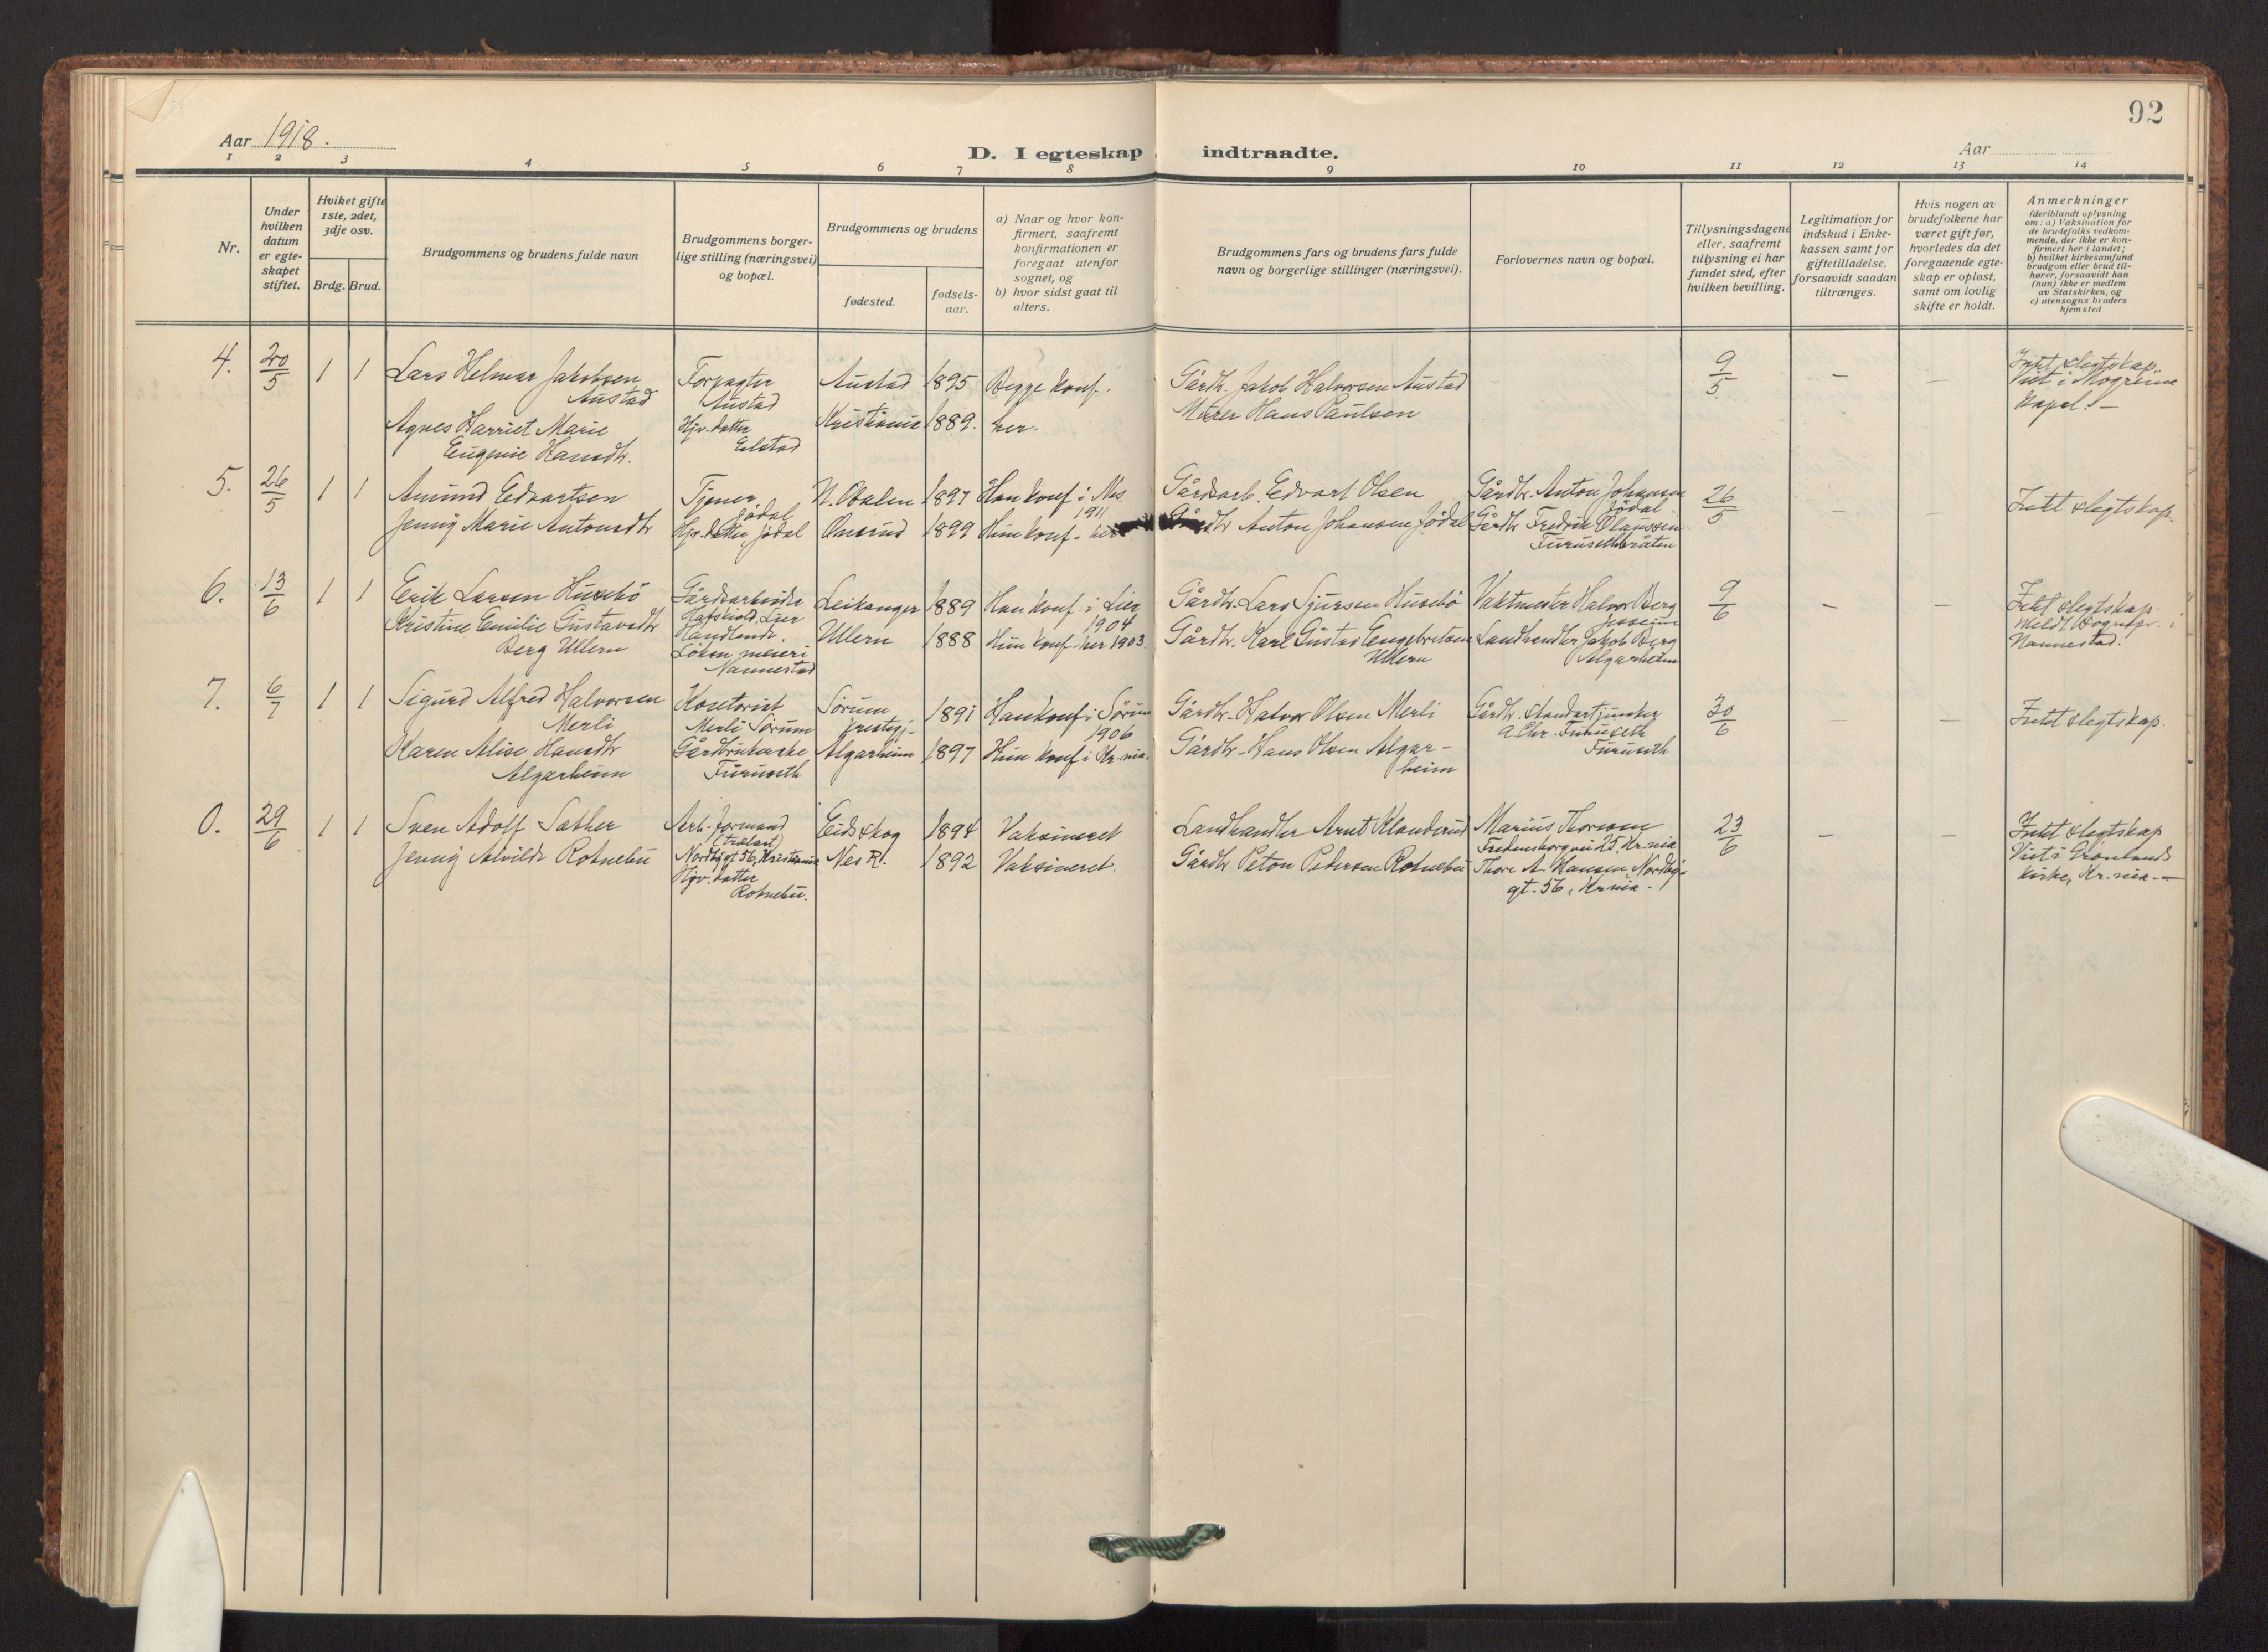 92
Aar 1918.
D. I egteskap indtraadte.
Aar
1 2 3 4 5 6 7 8 9 10 11 12 13 14
Nr.
Under hvilken datum er egteskapet stiftet.
Hvilket gifte 1ste, 2det, 3dje osv.
Brdg. Brud.
Brudgommens og brudens fulde navn
Brudgommens borgerlige stilling (næringsvei) og bopæl.
Brudgommens og brudens
fødested.
fødselsaar.
a) Naar og hvor konfirmert, saafremt konfirmationen er foregaat utenfor sognet, og
b) hvor sidst gaat til alters.
Brudgommens fars og brudens fars fulde navn og borgerlige stillinger (næringsvei).
Forlovernes navn og bopæl.
Tillysningsdagene eller, saafremt tillysning ei har fundet sted, efter hvilken bevilling.
Legitimation for indskud i Enkekassen samt for giftetilladelse, forsaavidt saadan tiltrænges.
Hvis nogen av brudefolkene har været gift før, hvorledes da det foregaaende egteskap er opløst, samt om lovlig skifte er holdt.
Anmerkninger
(deriblandt oplysning om: a) Vaksination for de brudefolks vedkommende, der ikke er konfirmert her i landet; b) hvilket kirkesamfund brudgom eller brud tilhører, forsaavidt han (hun) ikke er medlem av Statskirken, og c) utensogns bruders hjemsted
4. 20/5 1 1 Lars Helmer Jakobsen Austad
Forpagter Austad
Austad 1895 Begge konf.
Gårdbr. Jakob Halvorsen Austad
9/5 — —
Intet slegtskap. Viet i Mogreina kapel. —
Agnes Harriet Marie Eugenie Hansdtr.
Hjv. datter
Kristiania 1889. her.
Murer Hans Paulsen
5. 26/5 1 1 Amund Edvartsen
Tjener Jødal
N. Odalen 1897 Han konf. i Nes 1911
Gårdsarb. Edvart Olsen
Gårdbr. Anton Johansen Jødal
26/5 — —
Intet slegtskap.
Jenny Marie Antonsdtr
Hjv. datter, Jødal
1899 Hun konf. her
Gårdbr Anton Johansen Jødal
Gårdbr Fredrik Olaussen Furusethbråten
6. 13/6 1 1 Erik Larsen Husebö
Gårdsarbeider Lier
Leikanger 1889 Han konf. i Lier 1904
Gårdbr. Lars Sjursen Husebö
Vaktmester Halvor Berg Jessheim
9/6 — —
Intet slegtskap. i Nannestad.
Kristine Emilie Gustavsdtr Berg Ullern
Handlende. Löken meieri Nannestad
Ullern 1888 Hun konf. her 1903.
Gårdbr. Karl Gustav Engebretsen Ullern
Landhandler Jakob Berg Algarheim
7. 6/7 1 1 Sigurd Alfred Halvorsen Merli
Kontorist Merli Sörum
Sörum prestgj. 1891 Han konf. i Sörum 1906
Gårdbr. Halvor Olsen Merli
Gårdbr. standartjunker A. Chr. Furuseth Furuseth
30/6 — —
Intet slegtskap.
Karen Alise Hansdtr Algarheim
Furuseth
Algarheim 1897 Hun konf. i Kr.nia.
Gårdbr. Hans Olsen Algarheim
0. 29/6 1 1 Sven Adolf Sæther
Arb. formand Nordbygt 56, Kristiania
Eidskog 1894 Vaksineret
Landhandler Arnt Klanderud
Marius Thoresen Fredensborgvei 25, Kr.nia
23/6 — —
Intet slegtskap Viet i Grønlands kirke, Kr.nia. —
Jenny Alvilde Rotnebu
Hjv. datter Rotnebu.
Nes R. 1892 Vaksineret.
Gårdbr Peton Pedersen Rotnebu
Thore A. Hansen, Nordbygt. 56, Kr.nia.